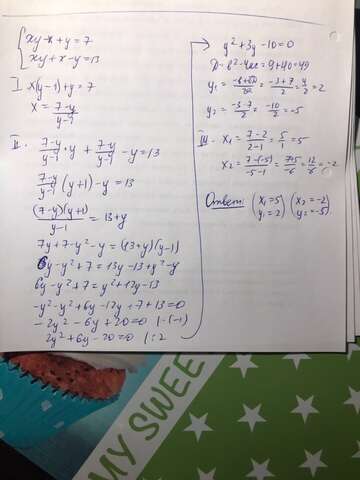 { xy-x+y=7
{ xy+x-y=13
I. x(y-1)+y=7
x = (7-y)/(y-1)
II. (7-y)/(y-1) · y + (7-y)/(y-1) - y = 13
(7-y)/(y-1) (y+1) - y = 13
(7-y)(y+1)/(y-1) = 13+y
7y+7-y²-y = (13+y)(y-1)
6y-y²+7 = 13y-13+y²-y
6y-y²+7 = y²+12y-13
-y²-y²+6y-12y+7+13=0
-2y²-6y+20=0 |·(-1)
2y²+6y-20=0 |:2
y²+3y-10=0
Д=b²-4ac=9+40=49
y₁ = (-b+√Д)/2a = (-3+7)/2 = 4/2 = 2
y₂ = (-3-7)/2 = -10/2 = -5
III. x₁ = (7-2)/(2-1) = 5/1 = 5
x₂ = (7-(-5))/(-5-1) = (7+5)/-6 = 12/-6 = -2
Ответ: (x₁=5 y₁=2) (x₂=-2 y₂=-5)
MY SWEE